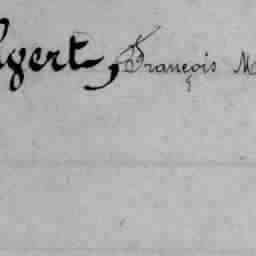 gert, François M